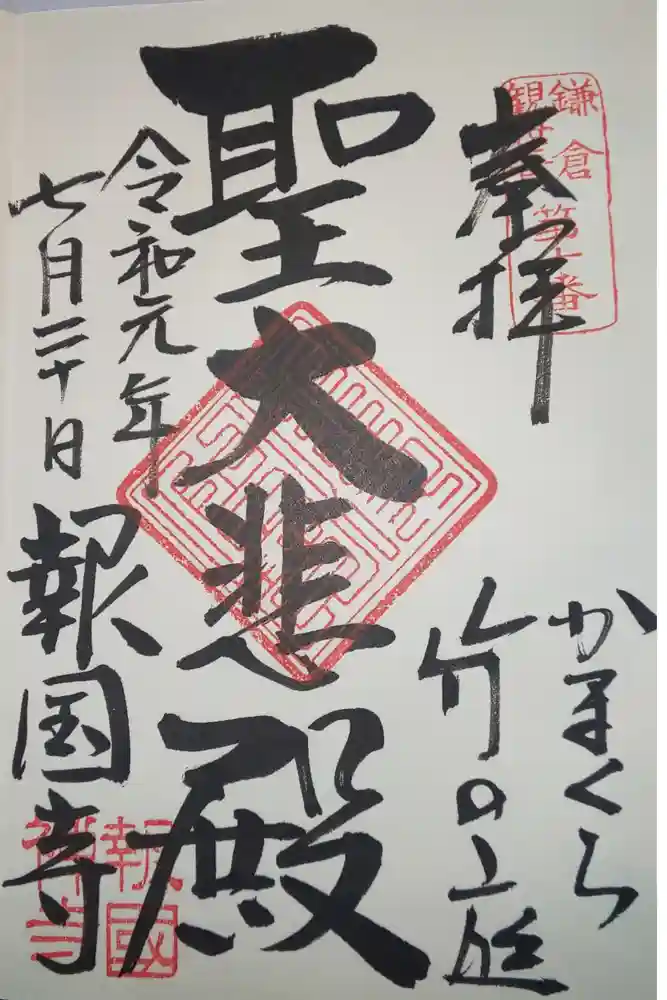 鎌倉
観世音
第十番
奉拝
かまくら
竹の庭
聖大悲殿
令和元年
七月二十日
報国寺
報國